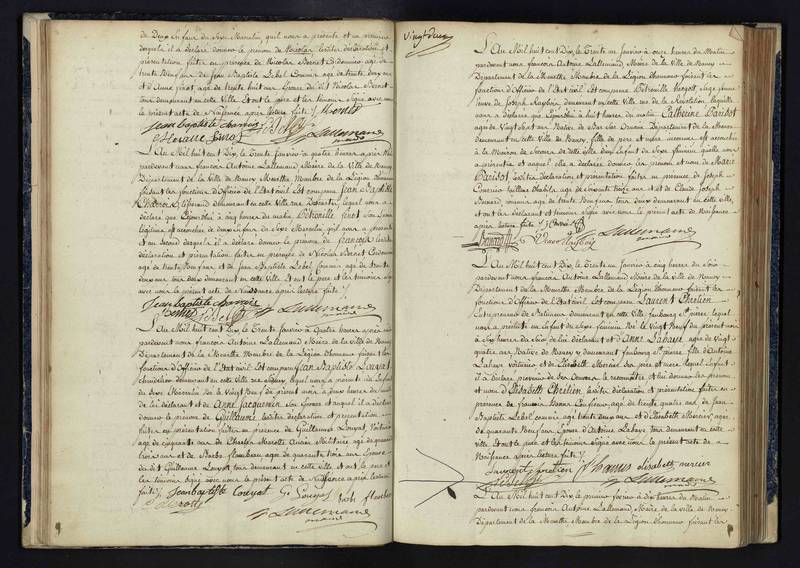 de Deux Enfans du Sexe Masculin, quel nous a présenté et au premier
duquel il a déclaré donner le prénom de Nicolas lesdites déclaration et
présentation faites en présence de Nicolas Bernet Cordonnier agé de
trente Neuf ans, de Jean Baptiste Lebel Commis agé de trente deux ans
et d'anne pinot agé de trente huit ans Epouse du dit Nicolas Bernet
tous demeurant en cette Ville Et ont le pere et les témoins signé avec nous
le présent acte de Naissance après lecture faite /. Bernet
Jean baptiste charoie
Lallemand
maire
L'An Mil huit cent Dix, le Trente Janvier à quatre heures après midi
pardevant nous françois Antoine Lallemand Maire de la Ville de Nancy
Département de la Meurthe, Membre de la Légion d'honneur
faisant les fonctions d'Officier de l'Etat civil Est comparu Jean Baptiste
demeurant en cette Ville lequel nous a
déclaré que Ejourd'hui à cinq heures du matin Petronille pinot son Epouse
légitime est accouchée de deux Enfans du Sexe Masculin qu'il nous a présenté
et au second duquel il a déclaré donner le prénom de françois lesdites
déclaration et présentation faites en présence de Nicolas Bernet Cordonnier
agé de trente Neuf ans, et de Jean Baptiste Lebel Commis agé de trente
deux ans tous deux demeurant en cette ville Et ont le pere et les témoins signé
avec nous le présent acte de Naissance après lecture faite /.
Jean baptiste charoie
Bernet Lallemand
maire
L'An Mil huit cent Dix, le Trente Janvier à Quatre heures après midi
pardevant nous françois Antoine Lallemand Maire de la Ville de Nancy
Département de la Meurthe Membre de la Légion d'honneur faisant les
fonctions d'Officier de l'Etat civil Est comparu Jean Baptiste Louyot
demeurant en cette ville lequel nous a présenté un Enfant
du Sexe Masculin Né le Vingt Neuf du présent mois à deux heures du
de lui déclarant et de Anne Jacquemin Son Epouse et auquel il a déclaré
donner le prénom de Guillaume lesdites déclaration et présentation
faites en présence de Guillaume Louyot, Voiturier
agé de cinquante ans de Charles Marotte Ancien Militaire agé de quarante
trois ans et de Barbe flambeau agée de quarante trois ans Epouse
du dit Guillaume Louyot tous demeurant en cette ville et ont le pere et
les témoins signé avec nous le présent acte de Naissance après lecture
faite /. Jean baptiste Louyot G. Louyot barbe flambeau
Marotte Lallemand
maire
Vingt deux
L'An Mil huit cent Dix, le Trente Janvier à onze heures du Matin
pardevant nous françois Antoine Lallemand, Maire de la Ville de Nancy
Département de la Meurthe Membre de la Légion d'honneur faisant les
fonctions d'Officier de l'Etat civil Est comparue Petronille
de Joseph demeurant en cette Ville laquelle
nous a déclaré que Ejourd'hui à huit heures du matin Catherine Paridot
agée de Vingt huit ans Native de Bar sur Ornain Département de la Meuse
demeurant en cette Ville, fille de pere et mere inconnus est accouchée
à la Maison de Secours de cette ville d'un Enfant du Sexe féminin qu'elle nous
a présenté et auquel elle a déclaré donner les prénom et nom de Marie
Paridot lesdites déclaration et présentation faites en présence de Joseph
agé de Soixante treize ans et de Claude Joseph
Benard, Commis agé de trente Neuf ans tous deux demeurant en cette ville,
et ont les déclarant et témoins signé avec nous le présent acte de Naissance
après lecture faite /.
Lallemand
maire
L'An Mil huit cent Dix, le Trente Janvier à cinq heures du Soir
pardevant nous françois Antoine Lallemand Maire de la Ville de Nancy
Département de la Meurthe Membre de la Légion d'honneur faisant les
fonctions d'Officier de l'Etat civil Est comparu Laurent Chrétien
Entrepreneur de Batimens demeurant en cette Ville faubourg St pierre, lequel
nous a présenté un Enfant du Sexe féminin Né le Vingt Neuf du présent mois
à Sept heures du Soir de lui déclarant et d'Anne Labaye agée de Vingt
quatre ans Native de Nancy y demeurant faubourg St pierre, fille d'Antoine
Labaye voiturier et de Elisabeth Mercier ses pere et mere lequel Enfant
il a déclaré provenir de Ses Oeuvres le reconnaître et lui donner les prénom
et nom d'Elisabeth Chrétien lesdites déclaration et présentation faites en
présence de françois agé de trente quatre ans de Jean
Baptiste Lebel commis agé trente deux ans et d'Elisabeth Mercier agée
de quarante Neuf ans Epouse d'Antoine Labaye tous demeurant en cette
Ville Et ont le pere et les témoins Signé avec nous le présent acte de
Naissance après lecture faite /.
Laurent chretien elisabeth mercier
Lallemand
maire
L'An Mil huit cent Dix le premier février à dix heures du Matin
pardevant nous françois Antoine Lallemand, Maire de la Ville de Nancy
Département de la Meurthe Membre de la Légion d'honneur faisant les